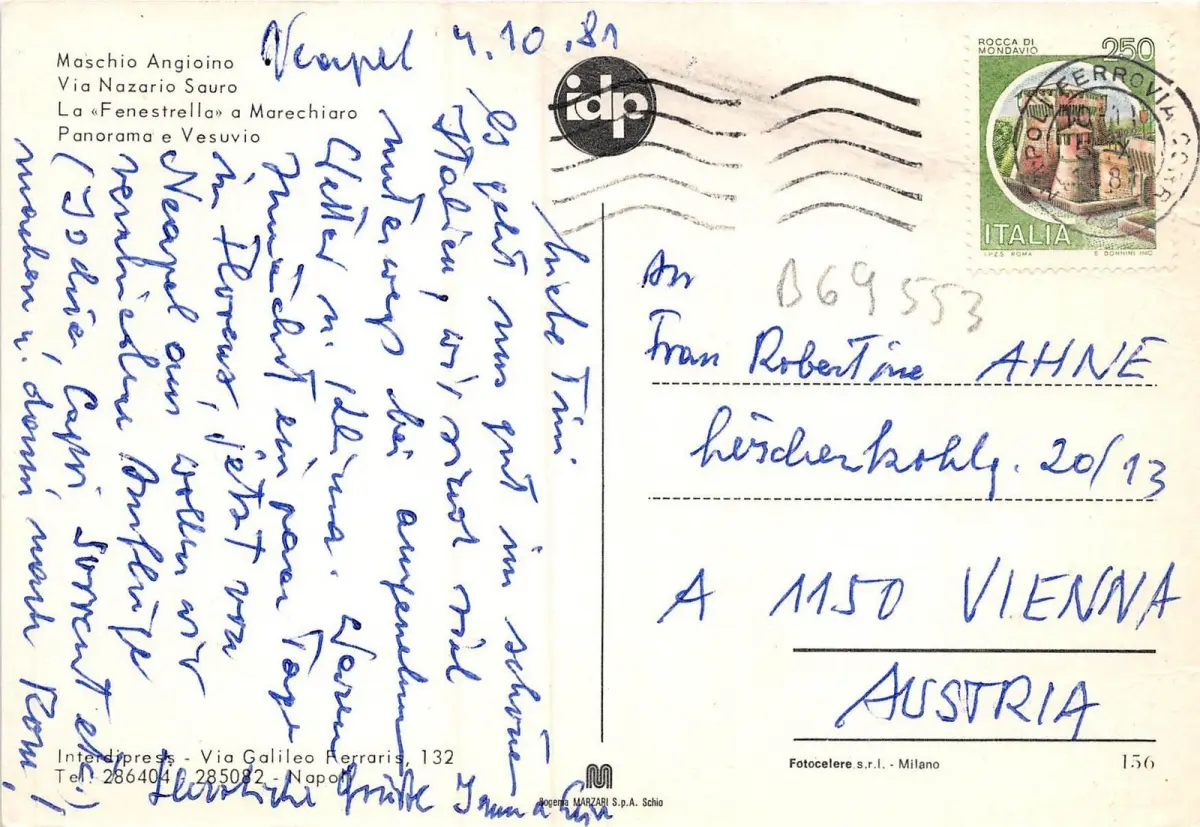 Maschio Angioino
Via Nazario Sauro
La «Fenestrella» a Marechiaro
Panorama e Vesuvio
Neapel 4.10.81
Liebe Trini
Es geht uns gut im schönen
Italien, wir sind viel
unterwegs bei angenehm
Wetter u. Klima. Waren
zunächst ein paar Tage
in Florenz, jetzt von
Neapel aus wollen wir
verschiedene Ausflüge
(Ischia, Capri, Sorrent etc.)
machen u. dann nach Rom!
Herzliche Grüße
idp
ROCCA DI
MONDAVIO
250
ITALIA
I.P.Z.S. ROMA
E. DONNINI INC.
FERROVIA
B69553
An
Frau Robertine AHNE
Löscherkohlg. 20/13
A 1150 VIENNA
AUSTRIA
Interdipress - Via Galileo Ferraris, 132
Tel. 286404 - 285082 - Napoli
Sogema MARZARI S.p.A. Schio
Fotocelere s.r.l. - Milano
156